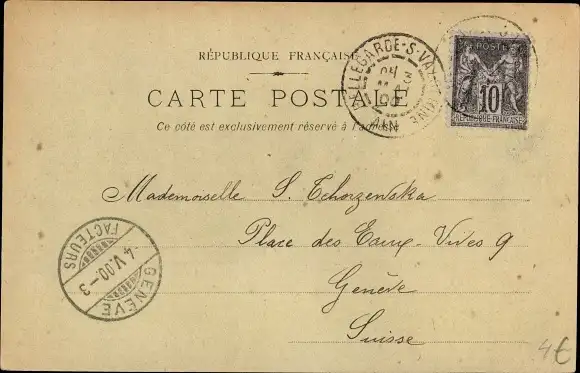 RÉPUBLIQUE FRANÇAISE
CARTE POSTALE
Ce côté est exclusivement réservé à l'adresse
BELLEGARDE-S-VALSERINE
AIN
POSTES
10
RÉPUBLIQUE FRANÇAISE
Mademoiselle S. Tchorzewska
Place des Eaux-Vives 9
Genève
Suisse
FACTEURS
4.V.00-3
GENÈVE
4€